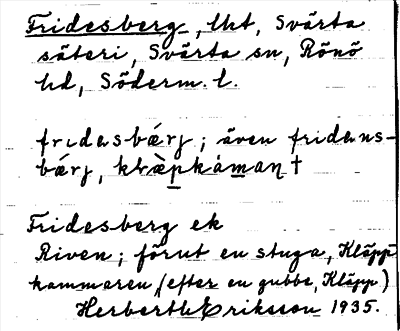 Fridesberg, lht, Svärta
säteri, Svärta sn, Rönö
hd, Söderm. l.
fridasbǽrj; även fridans-
bǽrj, klæ̀pkáman †
Fridesberg ek
Riven; förut en stuga, Kläpp-
kammaren (efter en gubbe, Kläpp)
Herbert Eriksson 1935.